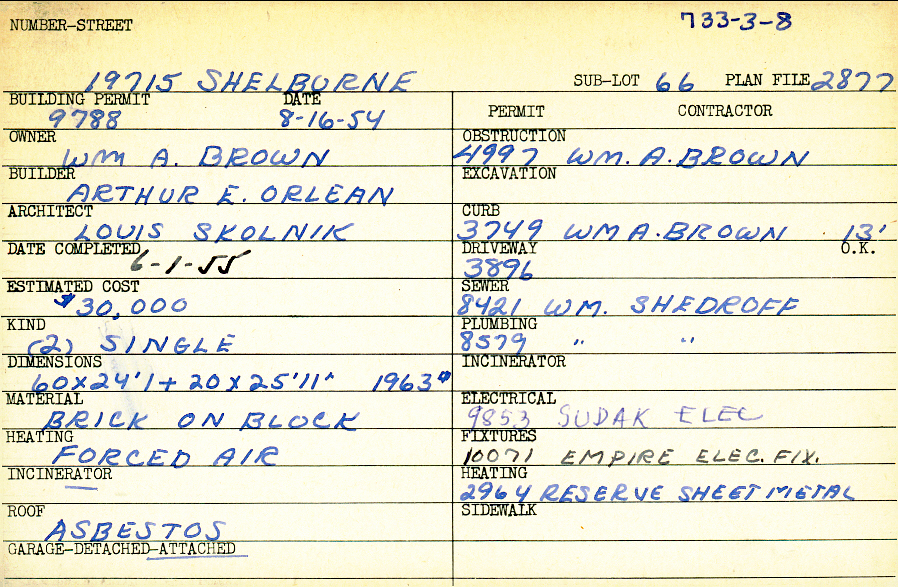 NUMBER-STREET 733-3-8
19715 SHELBURNE SUB-LOT 66 PLAN FILE 2877
BUILDING PERMIT DATE
9788 8-16-54
OWNER
WM A. BROWN
BUILDER
ARTHUR E. ORLEAN
ARCHITECT
LOUIS SKOLNIK
DATE COMPLETED
6-1-55
ESTIMATED COST
$30,000
KIND
(2) SINGLE
DIMENSIONS
60x24'1+20x25'11" 1963#
MATERIAL
BRICK ON BLOCK
HEATING
FORCED AIR
INCINERATOR
—
ROOF
ASBESTOS
GARAGE-DETACHED-ATTACHED
PERMIT CONTRACTOR
OBSTRUCTION
4997 WM. A. BROWN
EXCAVATION
CURB
3749 WM A. BROWN 13'
DRIVEWAY O.K.
3896
SEWER
8421 WM. SHEDROFF
PLUMBING
8579 " "
INCINERATOR
ELECTRICAL
9853 SUDAK ELEC
FIXTURES
10071 EMPIRE ELEC. FIX.
HEATING
2964 RESERVE SHEET METAL
SIDEWALK